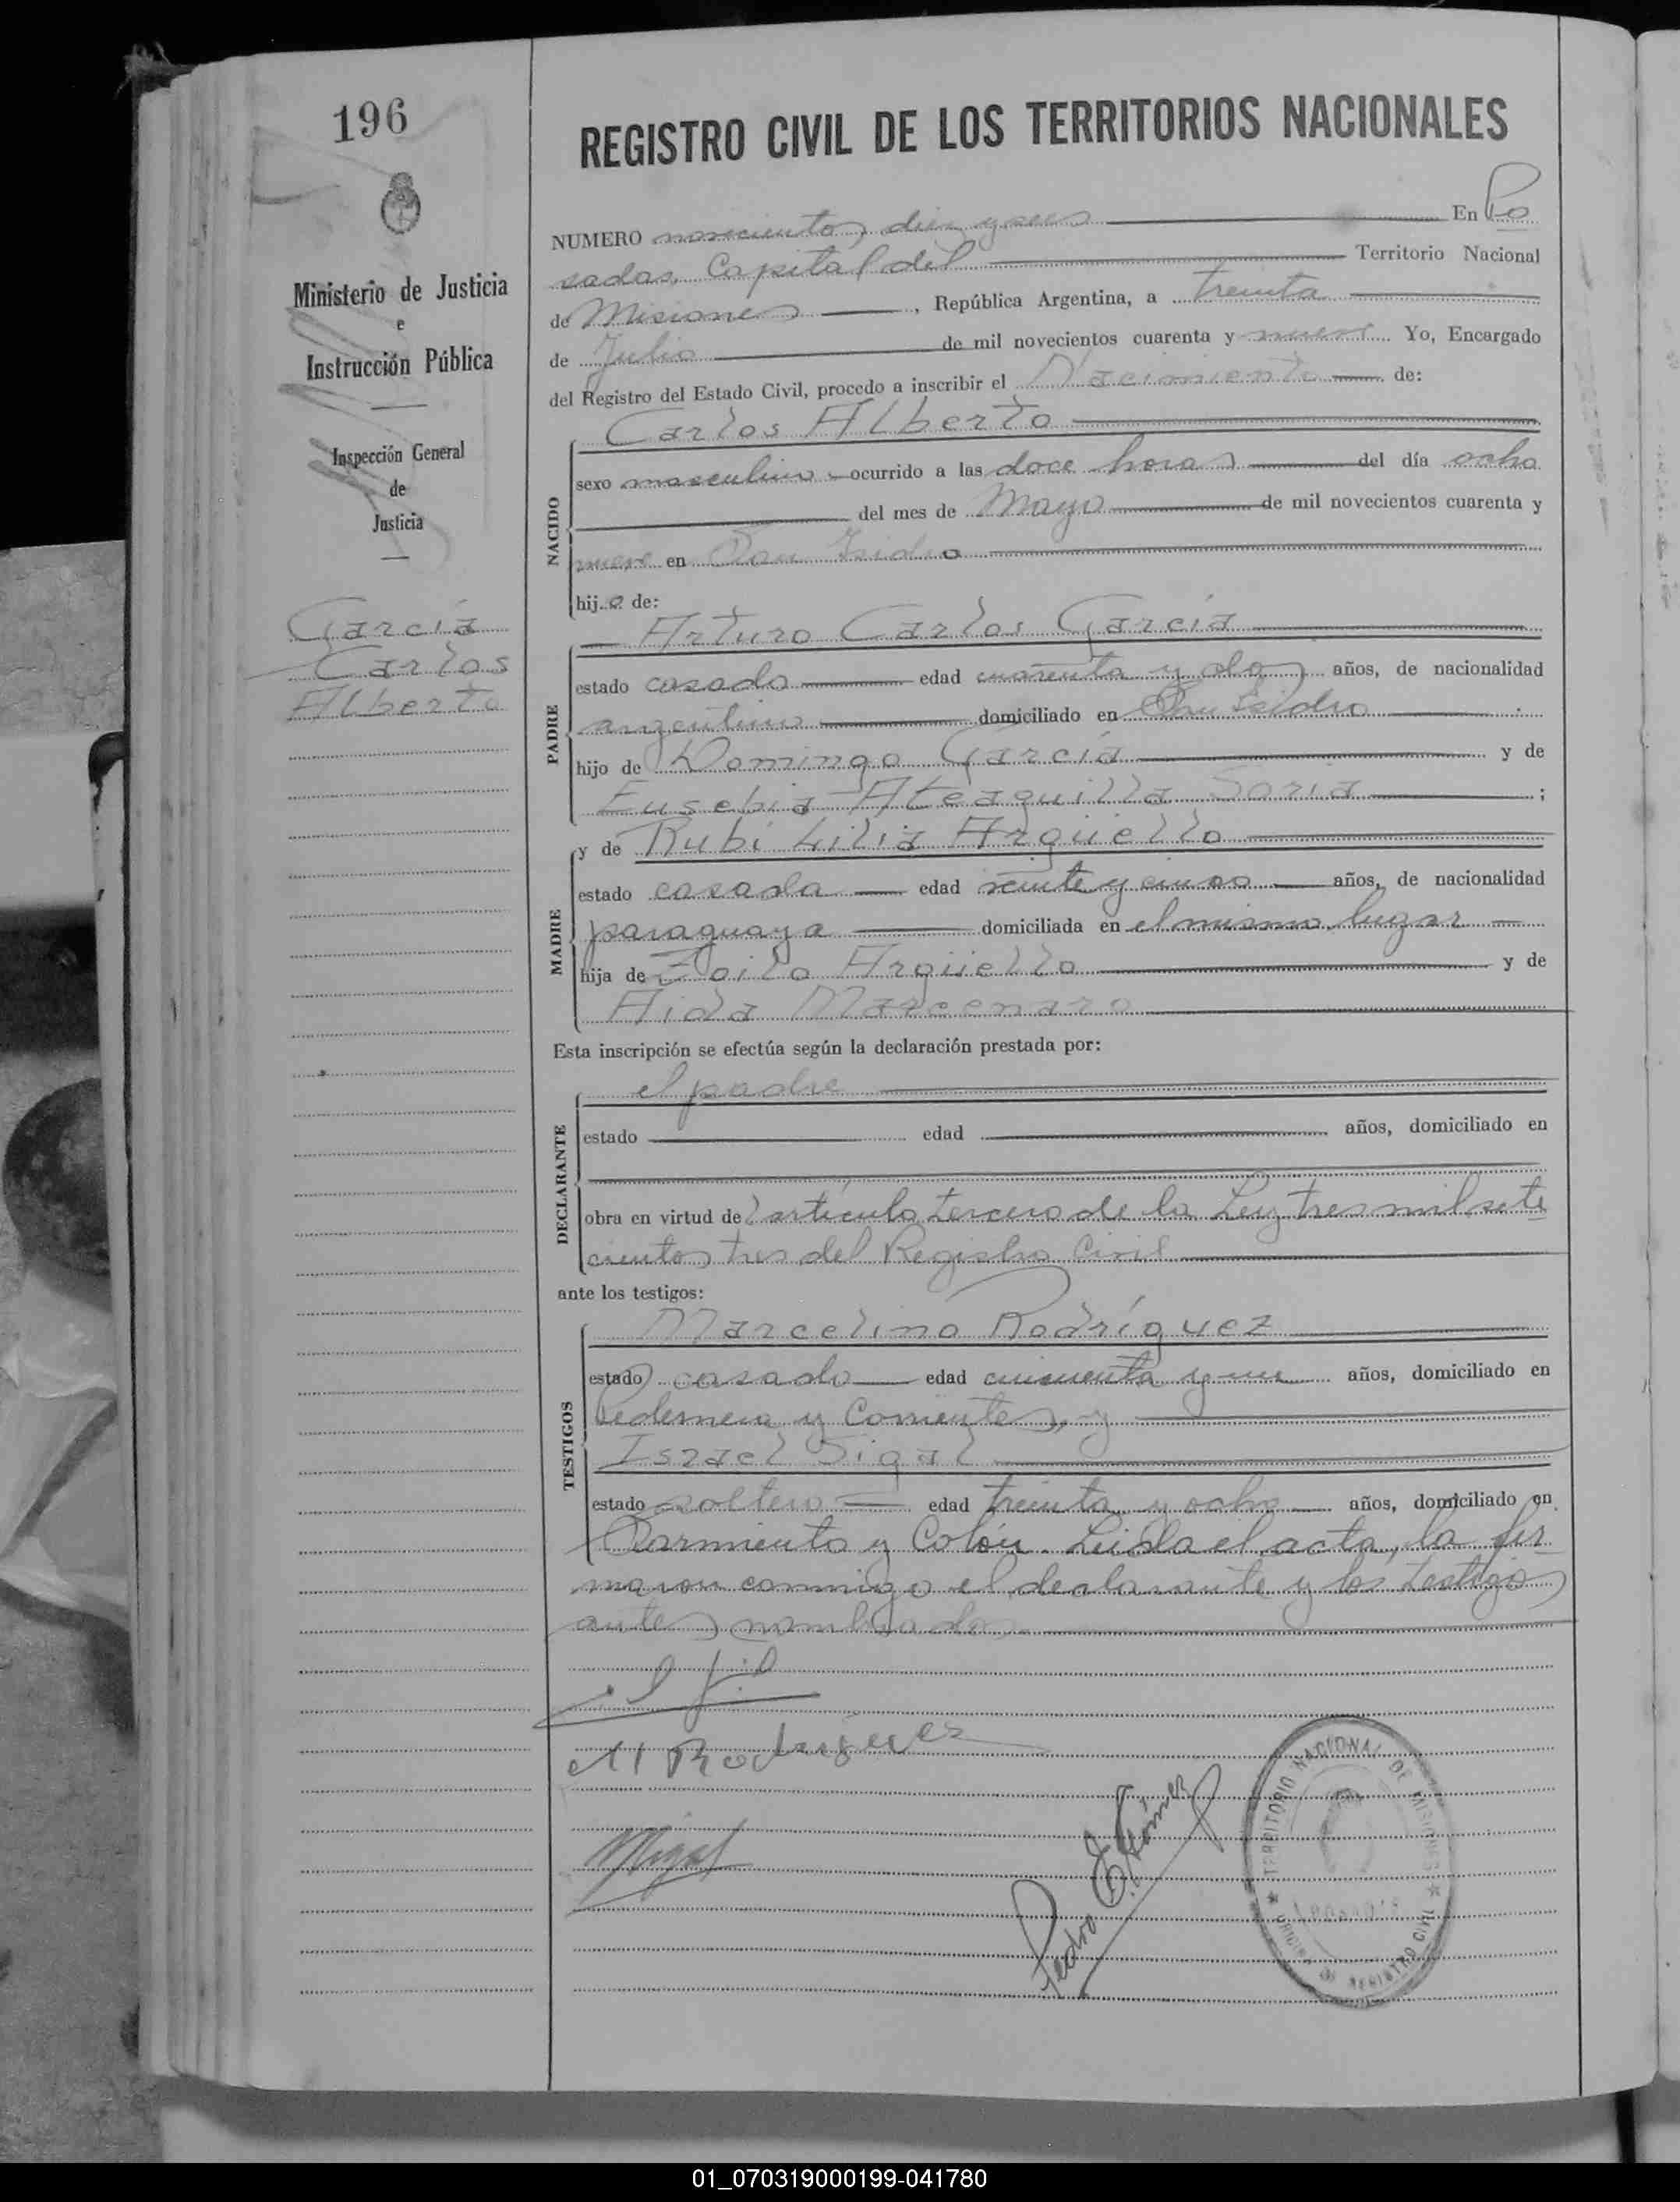 196
Ministerio de Justicia
e
Instrucción Pública
Inspección General
de
Justicia
García
Carlos
Alberto
REGISTRO CIVIL DE LOS TERRITORIOS NACIONALES
NUMERO novecientos diez y seis En Po
sadas, Capital del Territorio Nacional
de Misiones, República Argentina, a treinta
de Julio de mil novecientos cuarenta y nueve. Yo, Encargado
del Registro del Estado Civil, procedo a inscribir el Nacimiento de:
Carlos Alberto
NACIDO
sexo masculino ocurrido a las doce horas del día ocho
del mes de Mayo de mil novecientos cuarenta y
nueve en San Isidro
hijo de:
Arturo Carlos García
PADRE
estado casado edad cuarenta y dos años, de nacionalidad
argentino domiciliado en San Isidro
hijo de Domingo García y de
Eusebia Soria;
MADRE
y de Rubí Lilia Argüello
estado casada edad veinte y cinco años, de nacionalidad
paraguaya domiciliada en el mismo lugar
hija de Zoilo Argüello y de
Aida Marcenaro
Esta inscripción se efectúa según la declaración prestada por:
el padre
DECLARANTE
estado edad años, domiciliado en
obra en virtud del artículo tercero de la Ley tres mil sete
cientos tres del Registro Civil
ante los testigos:
Marcelino Rodríguez
TESTIGOS
estado casado edad cincuenta y un años, domiciliado en
Pedernera y Corrientes, y
Israel Sigal
estado soltero edad treinta y ocho años, domiciliado en
Sarmiento y Colón. Leida el acta, la fir
maron conmigo el declarante y los testigos
antes nombrados.
M Rodríguez
Pedro Gómez
TERRITORIO NACIONAL DE MISIONES
OFICINA DE REGISTRO CIVIL
01_070319000199-041780